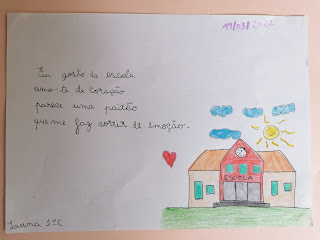 19/03/2022
Eu gosto da escola
amo-te de coração
parece uma paixão
que me faz sorrir de emoção.
ESCOLA
1ºC